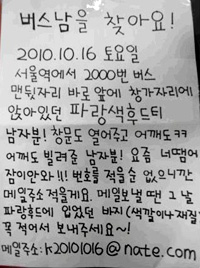 버스남을 찾아요!
2010.10.16 토요일
서울역에서 2000번 버스
맨뒷자리 바로 앞에 창가자리에
앉아있던 파랑색후드티
남자분! 창문도 열어주고 어깨도ㅋㅋ
어깨도 빌려준 남자분! 요즘 너땜에
잠이안와ㅠ!! 번호를 적을순 없으니깐
메일주소적을게요. 메일보낼 땐 그 날
파랑후드에 입었던 바지(색깔이나재질)
꼭 적어서 보내주세요~!
메일주소: k20101016@nate.com